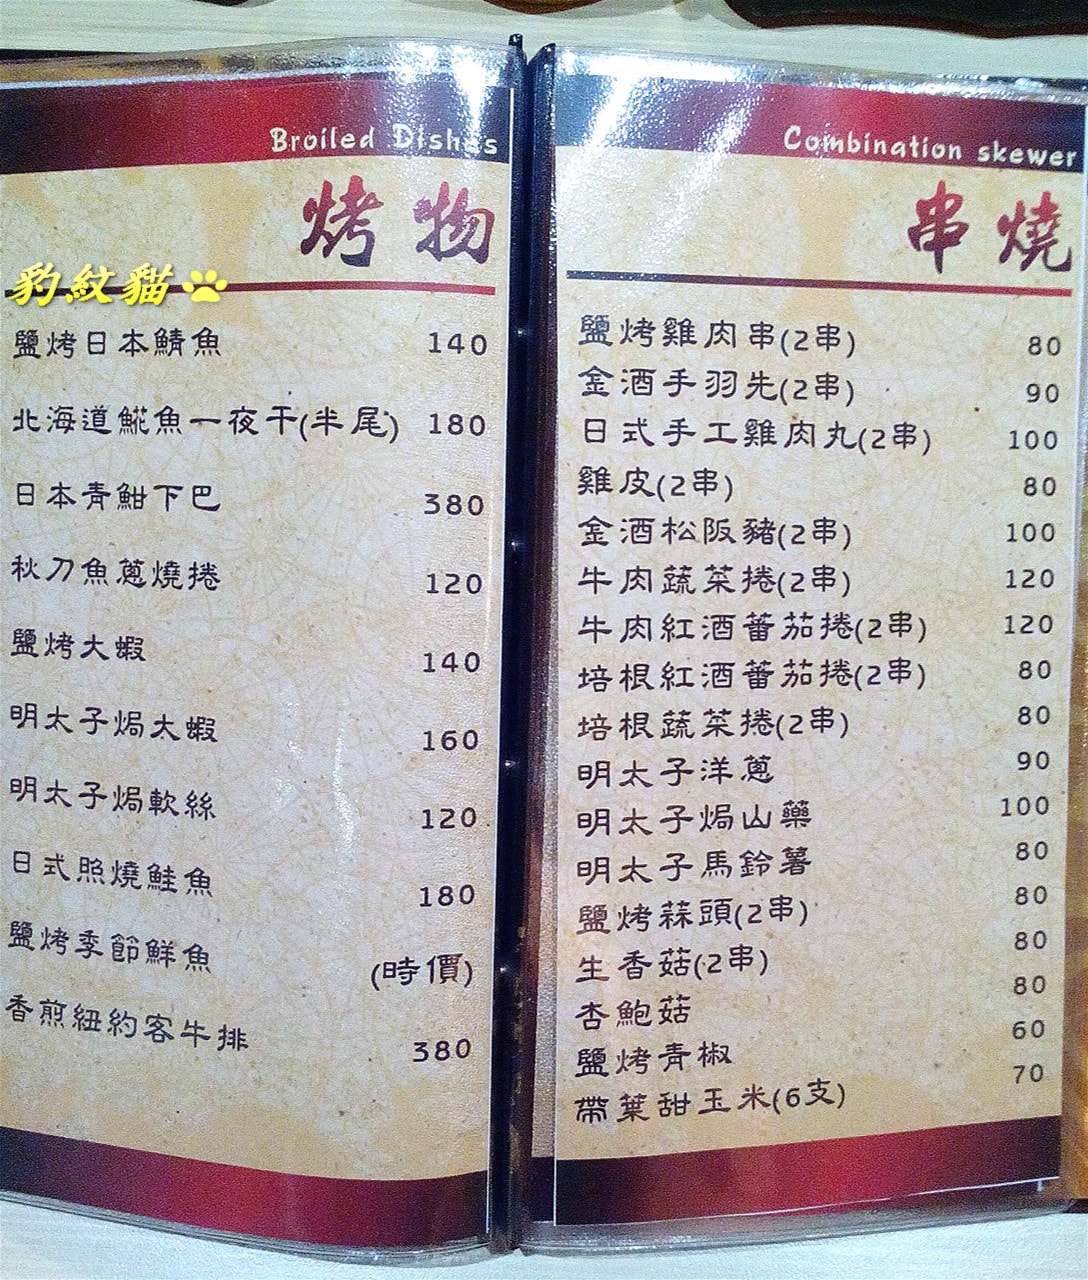 Broiled Dishes
烤物
豹紋貓
鹽烤日本鯖魚 140
北海道鯱魚一夜干(半尾) 180
日本青魽下巴 380
秋刀魚蔥燒捲 120
鹽烤大蝦 140
明太子焗大蝦 160
明太子焗軟絲 120
日式照燒鮭魚 180
鹽烤季節鮮魚 (時價)
香煎紐約客牛排 380
Combination skewer
串燒
鹽烤雞肉串(2串) 80
金酒手羽先(2串) 90
日式手工雞肉丸(2串) 100
雞皮(2串) 80
金酒松阪豬(2串) 100
牛肉蔬菜捲(2串) 120
牛肉紅酒蕃茄捲(2串) 120
培根紅酒蕃茄捲(2串) 80
培根蔬菜捲(2串) 80
明太子洋蔥 90
明太子焗山藥 100
明太子馬鈴薯 80
鹽烤蒜頭(2串) 80
生香菇(2串) 80
杏鮑菇 80
鹽烤青椒 60
帶葉甜玉米(6支) 70